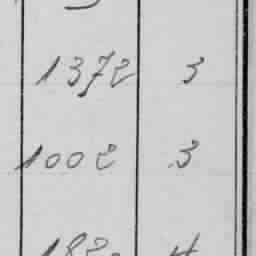 1372 3
1002 3